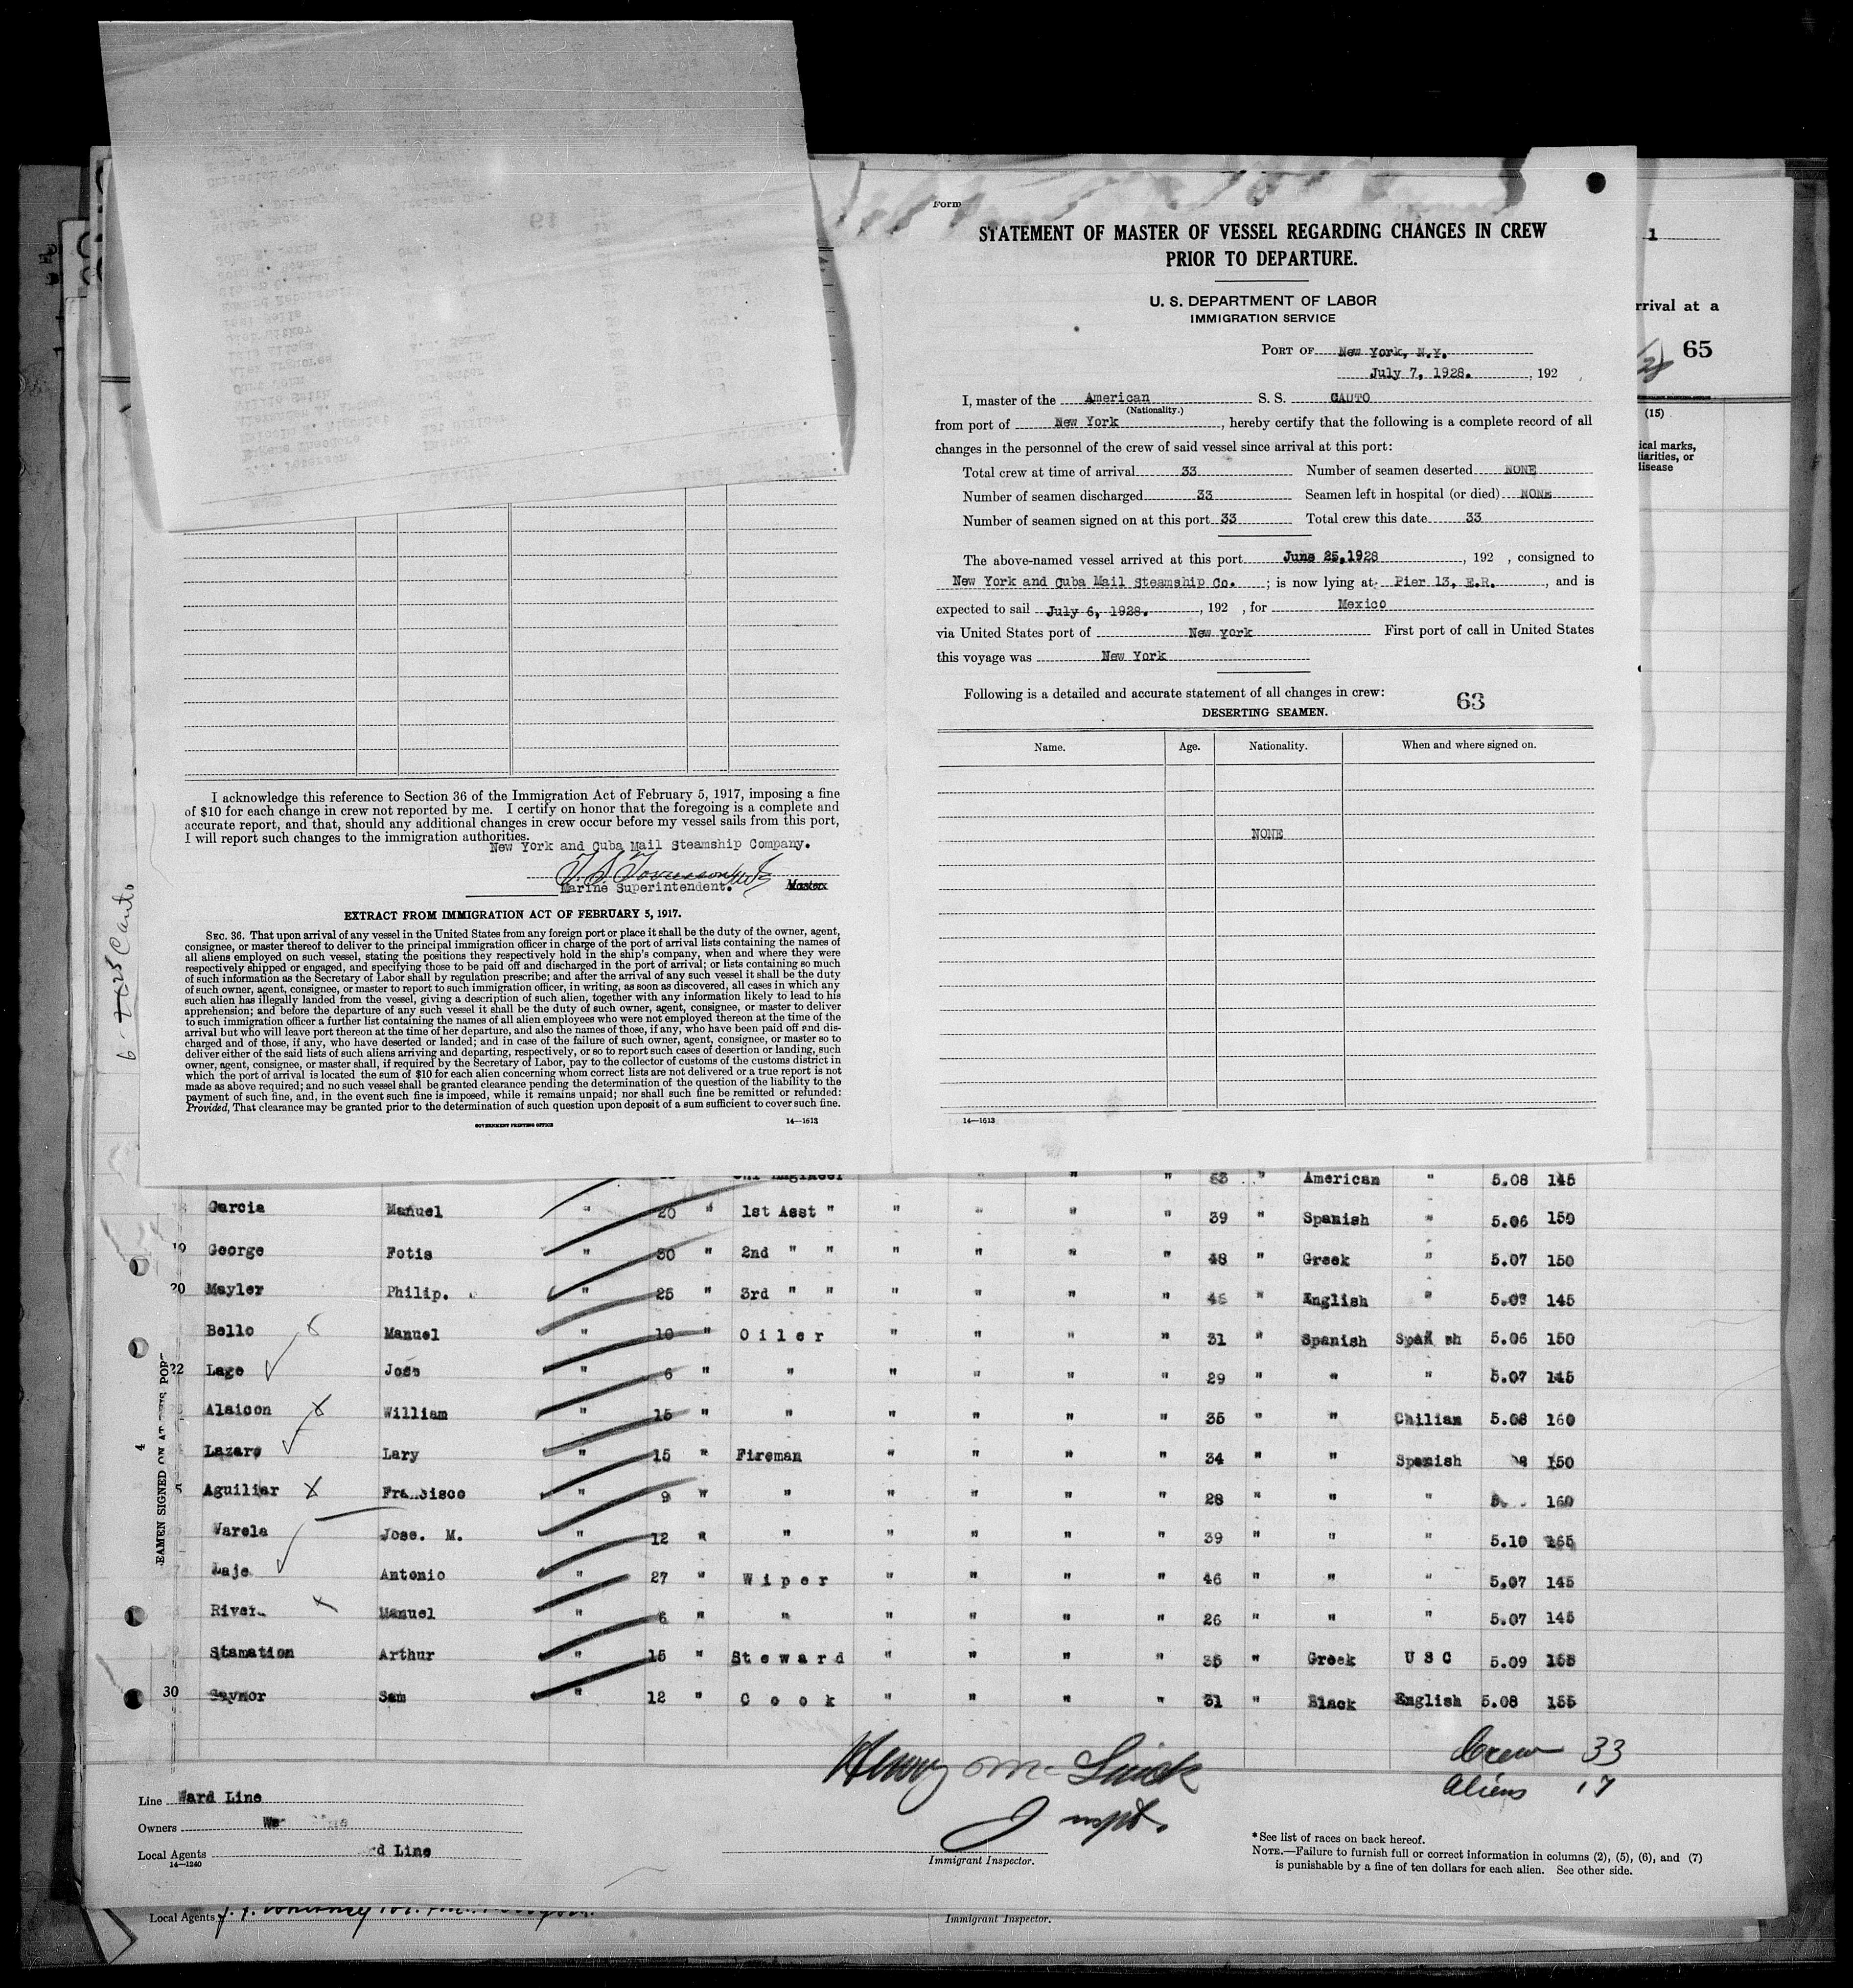 Form
STATEMENT OF MASTER OF VESSEL REGARDING CHANGES IN CREW
PRIOR TO DEPARTURE.
U. S. DEPARTMENT OF LABOR
IMMIGRATION SERVICE
PORT OF New York, N.Y.
July 7, 1928. , 192 ,
I, master of the American S. S. CAUTO
(Nationality.)
from port of New York , hereby certify that the following is a complete record of all
changes in the personnel of the crew of said vessel since arrival at this port:
Total crew at time of arrival 33 Number of seamen deserted NONE
Number of seamen discharged 33 Seamen left in hospital (or died) NONE
Number of seamen signed on at this port 33 Total crew this date 33
The above-named vessel arrived at this port June 25,1928 , 192 , consigned to
New York and Cuba Mail Steamship Co. ; is now lying at Pier 13, E.R. , and is
expected to sail July 6, 1928. , 192 , for Mexico
via United States port of New york First port of call in United States
this voyage was New York
Following is a detailed and accurate statement of all changes in crew: 63
DESERTING SEAMEN.
Name. Age. Nationality. When and where signed on.
NONE
14—1613
1
rrival at a
65
(15)
ical marks,
liarities, or
disease
I acknowledge this reference to Section 36 of the Immigration Act of February 5, 1917, imposing a fine
of $10 for each change in crew not reported by me. I certify on honor that the foregoing is a complete and
accurate report, and that, should any additional changes in crew occur before my vessel sails from this port,
I will report such changes to the immigration authorities.
New York and Cuba Mail Steamship Company.
Marine Superintendent. Master
EXTRACT FROM IMMIGRATION ACT OF FEBRUARY 5, 1917.
SEC. 36. That upon arrival of any vessel in the United States from any foreign port or place it shall be the duty of the owner, agent,
consignee, or master thereof to deliver to the principal immigration officer in charge of the port of arrival lists containing the names of
all aliens employed on such vessel, stating the positions they respectively hold in the ship's company, when and where they were
respectively shipped or engaged, and specifying those to be paid off and discharged in the port of arrival; or lists containing so much
of such information as the Secretary of Labor shall by regulation prescribe; and after the arrival of any such vessel it shall be the duty
of such owner, agent, consignee, or master to report to such immigration officer, in writing, as soon as discovered, all cases in which any
such alien has illegally landed from the vessel, giving a description of such alien, together with any information likely to lead to his
apprehension; and before the departure of any such vessel it shall be the duty of such owner, agent, consignee, or master to deliver
to such immigration officer a further list containing the names of all alien employees who were not employed thereon at the time of the
arrival but who will leave port thereon at the time of her departure, and also the names of those, if any, who have been paid off and dis-
charged and of those, if any, who have deserted or landed; and in case of the failure of such owner, agent, consignee, or master so to
deliver either of the said lists of such aliens arriving and departing, respectively, or so to report such cases of desertion or landing, such
owner, agent, consignee, or master shall, if required by the Secretary of Labor, pay to the collector of customs of the customs district in
which the port of arrival is located the sum of $10 for each alien concerning whom correct lists are not delivered or a true report is not
made as above required; and no such vessel shall be granted clearance pending the determination of the question of the liability to the
payment of such fine, and, in the event such fine is imposed, while it remains unpaid; nor shall such fine be remitted or refunded:
Provided, That clearance may be granted prior to the determination of such question upon deposit of a sum sufficient to cover such fine.
GOVERNMENT PRINTING OFFICE 14—1613
Cauto
Chf Engineer " " " 53 " American " 5.08 145
Garcia Manuel " 20 " 1st Asst " " " " " 39 " Spanish " 5.06 150
19 George Fotis " 30 " 2nd " " " " " " 48 " Greek " 5.07 150
20 Mayler Philip. " 25 " 3rd " " " " " " " English " 145
Bello Manuel " 10 " Oiler " " " " 31 " Spanish 5.06 150
22 Lage Jose " 6 " " " " " " 29 " " " 5.07 145
Alaicon William " 15 " " " " " " 35 " " Chilian 5.08 160
Lazaro Lary " 15 " Fireman " " " " 34 " " Spanish 150
Aguiliar Francisco " 9 " " " " " " 28 " " " 160
Varela Jose. M. " 12 " " " " " " 39 " " " 5.10
Laje Antonio " 27 " Wiper " " " " 46 " " " 5.07 145
Manuel " 6 " " " " " " 26 " " " 5.07 145
Stamation Arthur " 15 " Steward " " " " 35 " Greek USC 5.09 155
30 Gaynor Sam " 12 " Cook " " " " 31 " Black English 5.08 155
4
EAMEN SIGNED ON AT THIS POR
Crew 33
Aliens 17
Henry
Inspt.
Line Ward Line
Owners
Local Agents rd Line
14—1240
Immigrant Inspector.
*See list of races on back hereof.
NOTE.—Failure to furnish full or correct information in columns (2), (5), (6), and (7)
is punishable by a fine of ten dollars for each alien. See other side.
Local Agents
Immigrant Inspector.